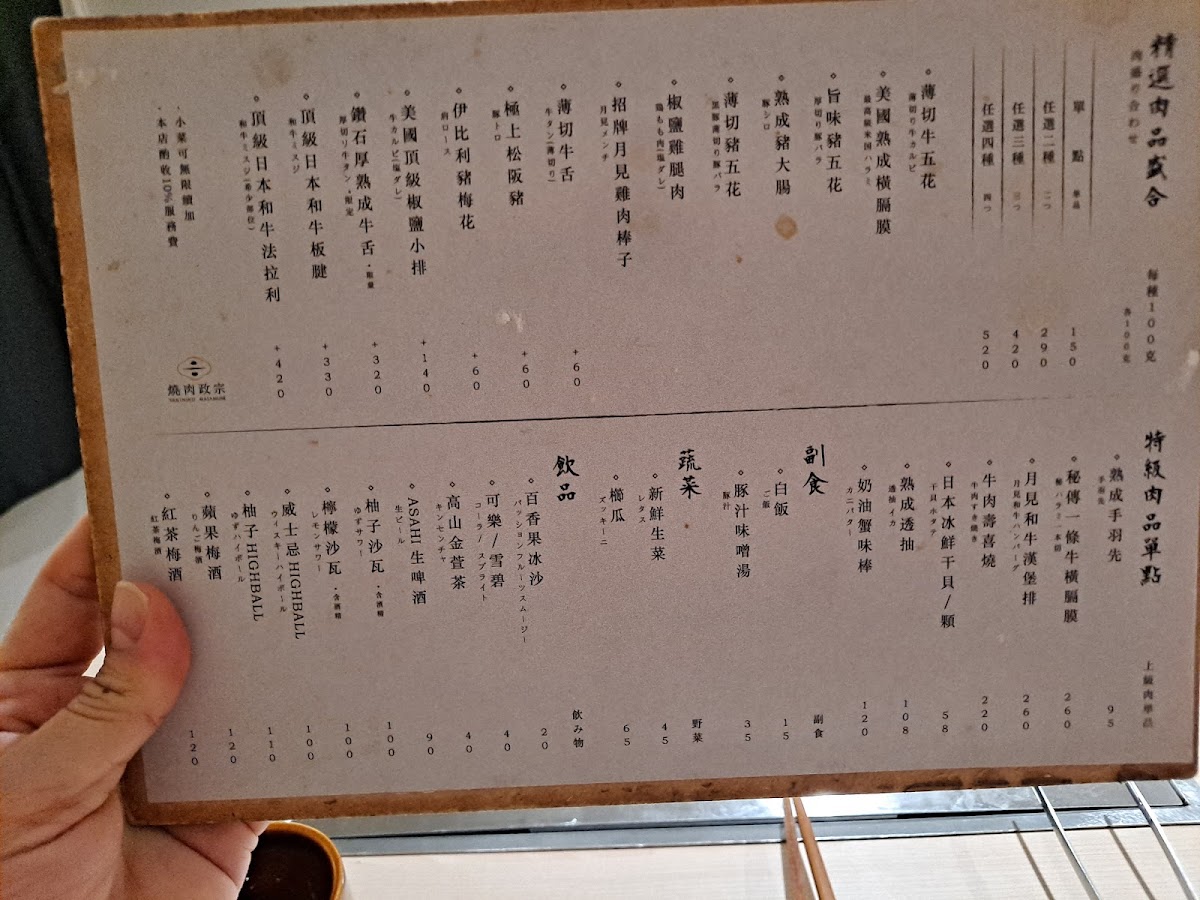 精選肉品盛合
肉盛り合わせ
每種100克
各100克
單點 單品 150
任選二種 二つ 290
任選三種 三つ 420
任選四種 四つ 520
薄切牛五花
薄切り牛カルビ
美國熟成橫膈膜
最高級米国ハラミ
旨味豬五花
厚切り豚バラ
熟成豬大腸
豚シロ
薄切豬五花
黒豚薄切り豚バラ
椒鹽雞腿肉
鶏もも肉(塩ダレ)
招牌月見雞肉棒子
月見メンチ
薄切牛舌 +60
牛タン(薄切り)
極上松阪豬 +60
豚トロ
伊比利豬梅花 +60
肩ロース
美國頂級椒鹽小排 +140
牛カルビ(塩ダレ)
鑽石厚熟成牛舌・限量 +320
厚切り牛タン・限定
頂級日本和牛板腱 +330
和牛ミスジ
頂級日本和牛法拉利 +420
和牛ミスジ(希少部位)
・小菜可無限續加
・本店酌收10%服務費
燒肉政宗
YAKINIKU MASAMUNE
特級肉品單點
上級肉單品
熟成手羽先 95
手羽先
秘傳一條牛橫膈膜 260
極ハラミ一本焼
月見和牛漢堡排 260
月見和牛ハンバーグ
牛肉壽喜燒 220
牛肉すき焼き
日本冰鮮干貝/顆 58
干貝ホタテ
熟成透抽 108
透抽イカ
奶油蟹味棒 120
カニバター
副食
副食
白飯 15
ご飯
豚汁味噌湯 35
豚汁
蔬菜
野菜
新鮮生菜 45
レタス
櫛瓜 65
ズッキーニ
飲品
飲み物
百香果冰沙 20
パッションフルーツスムージー
可樂/雪碧 40
コーラ/スプライト
高山金萱茶 40
キンセンチャ
ASAHI生啤酒 90
生ビール
柚子沙瓦・含酒精 100
ゆずサワー
檸檬沙瓦・含酒精 100
レモンサワー
威士忌HIGHBALL 100
ウィスキーハイボール
柚子HIGHBALL 110
ゆずハイボール
蘋果梅酒 120
りんご梅酒
紅茶梅酒 120
紅茶梅酒